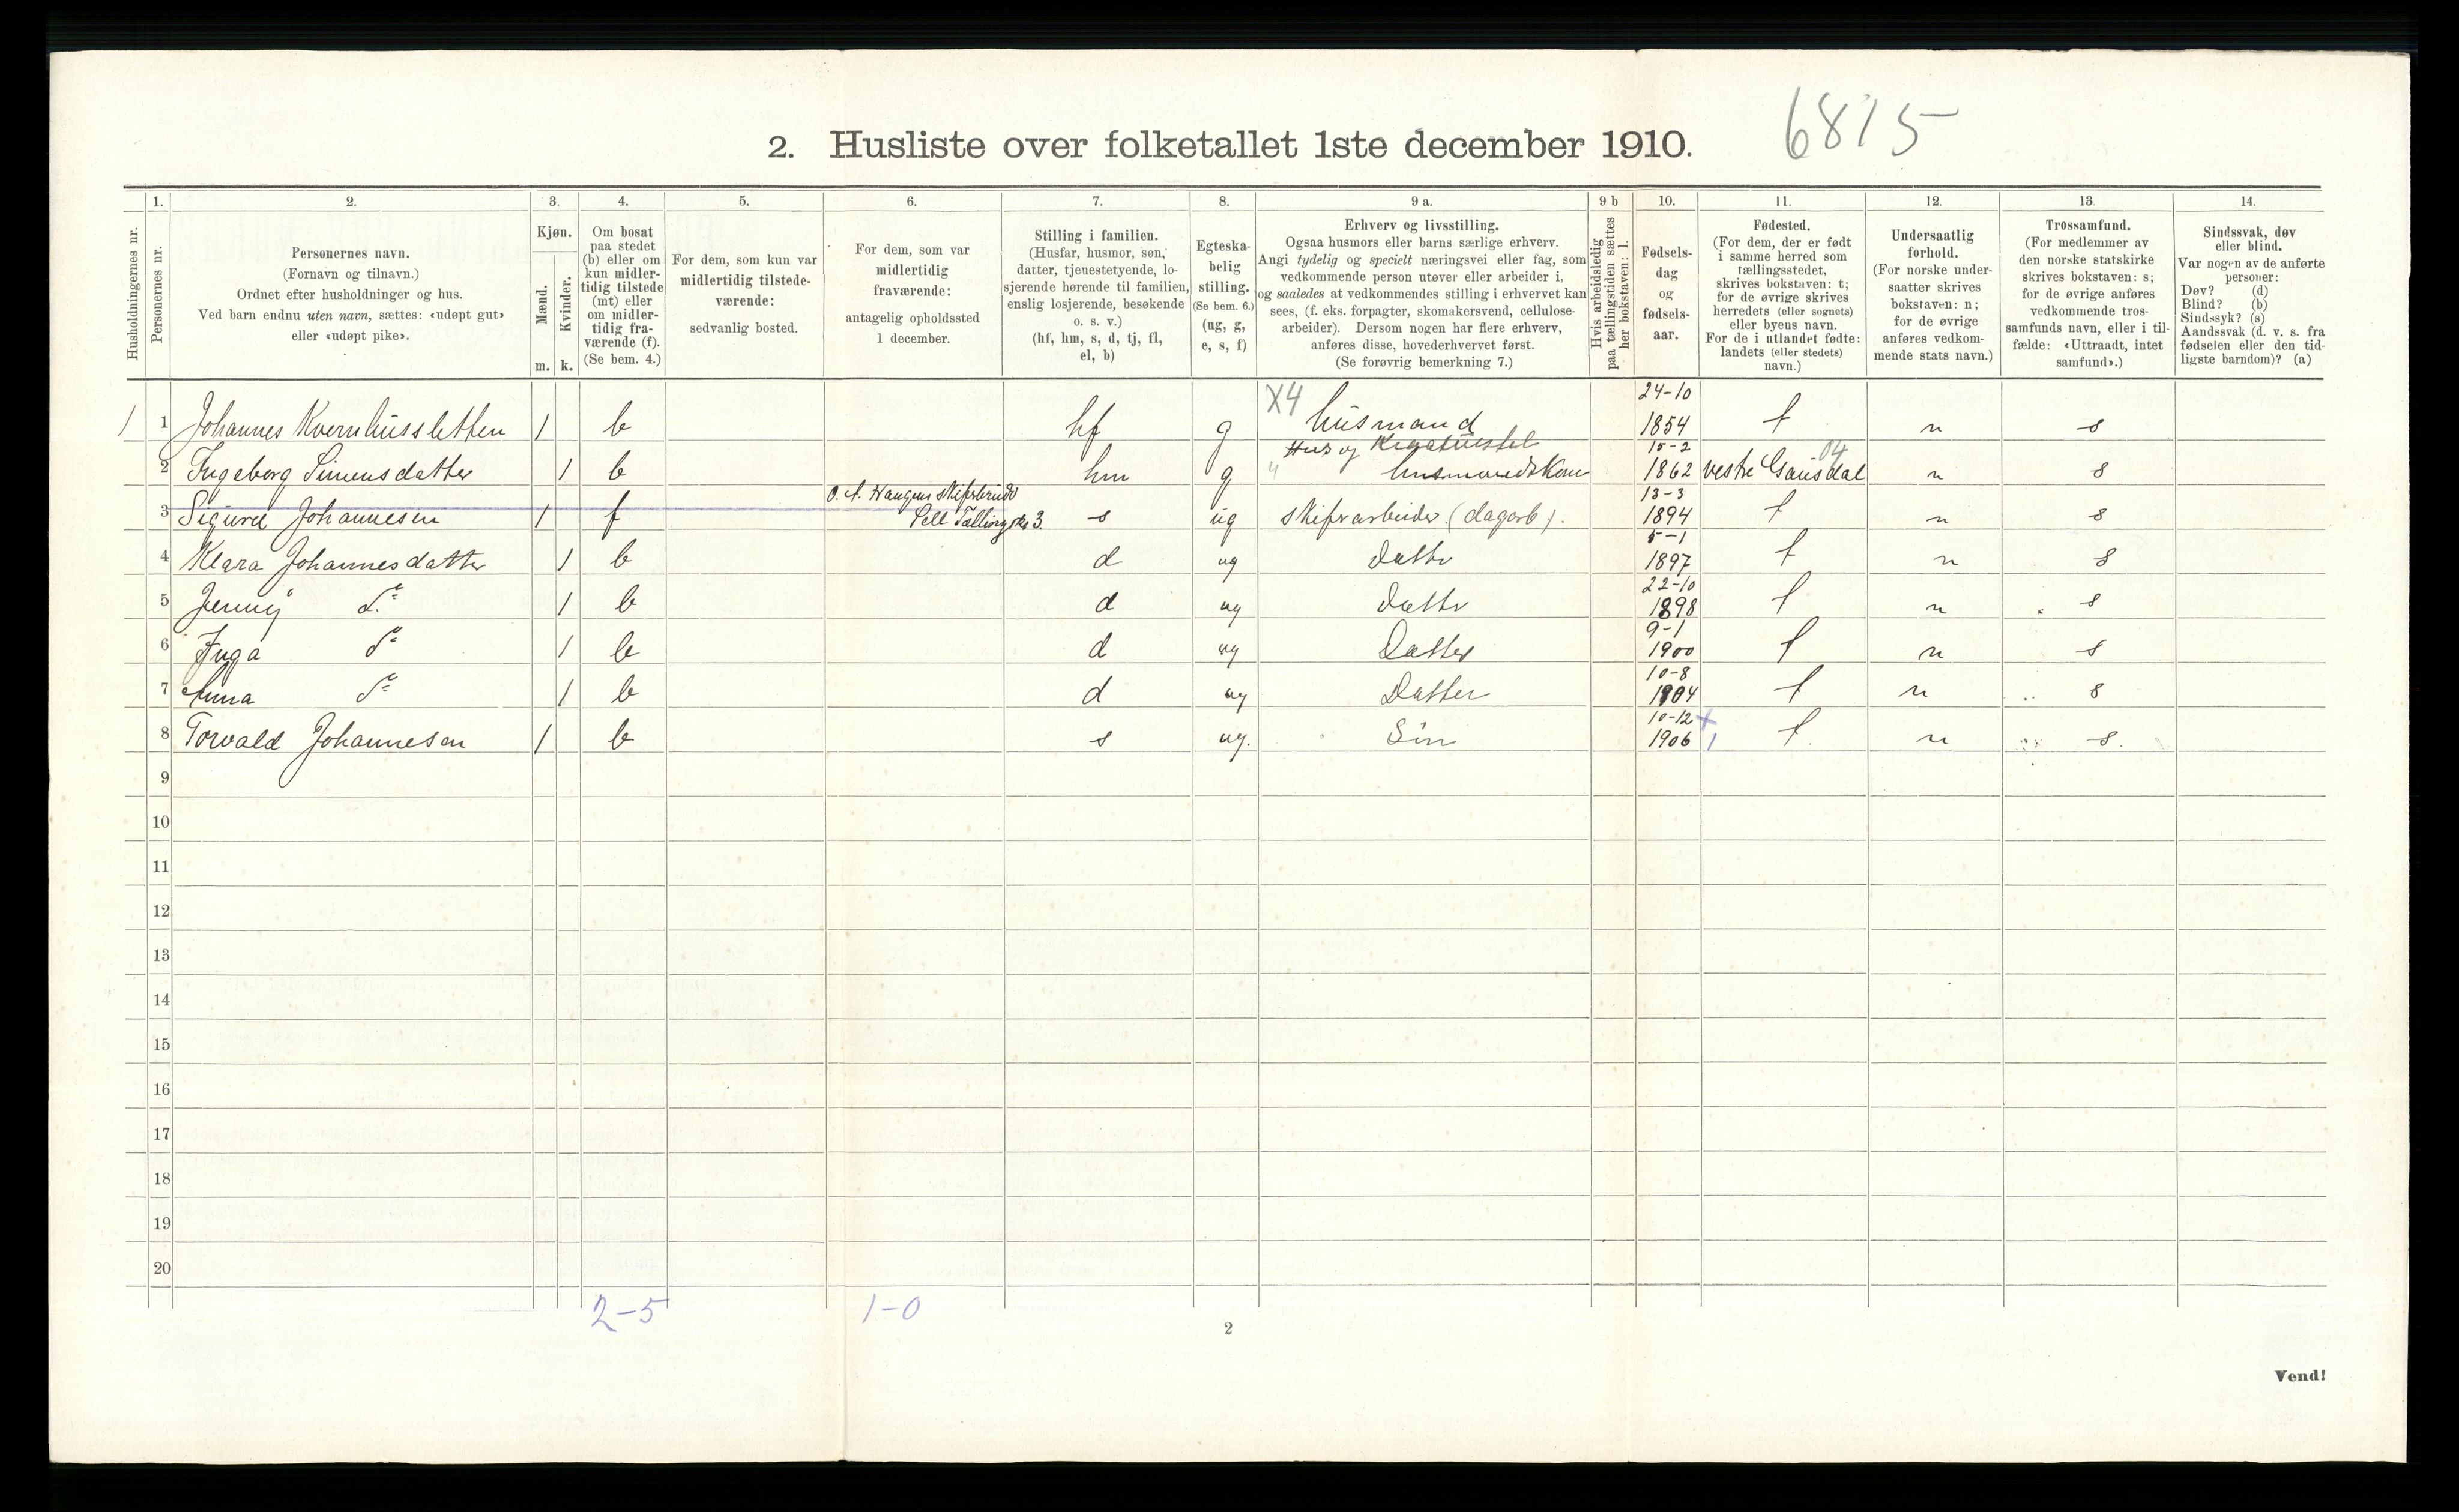 6815
2. Husliste over folketallet 1ste december 1910.
Husholdningernes nr.
1.
Personernes nr.
2.
Personernes navn.
(Fornavn og tilnavn.)
Ordnet efter husholdninger og hus.
Ved barn endnu uten navn, sættes: «udøpt gut»
eller «udøpt pike».
3.
Kjøn.
Mænd.
Kvinder.
m.
k.
4.
Om bosat
paa stedet
(b) eller om
kun midler-
tidig tilstede
(mt) eller
om midler-
tidig fra-
værende (f).
(Se bem. 4.)
5.
For dem, som kun var
midlertidig tilstede-
værende:
sedvanlig bosted.
6.
For dem, som var
midlertidig
fraværende:
antagelig opholdssted
1 december.
7.
Stilling i familien.
(Husfar, husmor, søn,
datter, tjenestetyende, lo-
sjerende hørende til familien,
enslig losjerende, besøkende
o. s. v.)
(hf, hm, s, d, tj, fl,
el, b)
8.
Egteska-
belig
stilling.
(Se bem. 6.)
(ug, g,
e, s, f)
9 a.
Erhverv og livsstilling.
Ogsaa husmors eller barns særlige erhverv.
Angi tydelig og specielt næringsvei eller fag, som
vedkommende person utøver eller arbeider i,
og saaledes at vedkommendes stilling i erhvervet kan
sees, (f. eks. forpagter, skomakersvend, cellulose-
arbeider). Dersom nogen har flere erhverv,
anføres disse, hovederhvervet først.
(Se forøvrig bemerkning 7.)
9 b
Hvis arbeidsledig
paa tællingstiden sættes
her bokstaven: l.
10.
Fødsels-
dag
og
fødsels-
aar.
11.
Fødested.
(For dem, der er født
i samme herred som
tællingsstedet,
skrives bokstaven: t;
for de øvrige skrives
herredets (eller sognets)
eller byens navn.
For de i utlandet fødte:
landets (eller stedets)
navn.)
12.
Undersaatlig
forhold.
(For norske under-
saatter skrives
bokstaven: n;
for de øvrige
anføres vedkom-
mende stats navn.)
13.
Trossamfund.
(For medlemmer av
den norske statskirke
skrives bokstaven: s;
for de øvrige anføres
vedkommende tros-
samfunds navn, eller i til-
fælde: «Uttraadt, intet
samfund».)
14.
Sindssvak, døv
eller blind.
Var nogen av de anførte
personer:
Døv? (d)
Blind? (b)
Sindssyk? (s)
Aandssvak (d. v. s. fra
fødselen eller den tid-
ligste barndom)? (a)
X4 24-10
1 1 Johannes Kvernhussletten 1 b hf g husmand 1854 t n s
Hus og Kreaturstel 15-2 04
2 Ingeborg Simensdatter 1 b hm g " husmandskone 1862 vestre Gausdal n s
O. A. Haugens skiferbrudd 13-3
3 Sigurd Johannesen 1 f Sell Tællingskr 3. s ug skiferarbeider (dagarb). 1894 t n s
5-1
4 Klara Johannesdatter 1 b d ug Datter 1897 t n s
22-10
5 Jenny do 1 b d ug Datter 1898 t n s
9-1
6 Inga do 1 b d ug Datter 1900 t n s
10-8
7 Anna do 1 b d ug Datter 1904 t n s
10-12 x
8 Torvald Johannesen 1 b s ug. Sön 1906 1 t n s.
9
10
11
12
13
14
15
16
17
18
19
20
2-5 1-0
2
Vend!